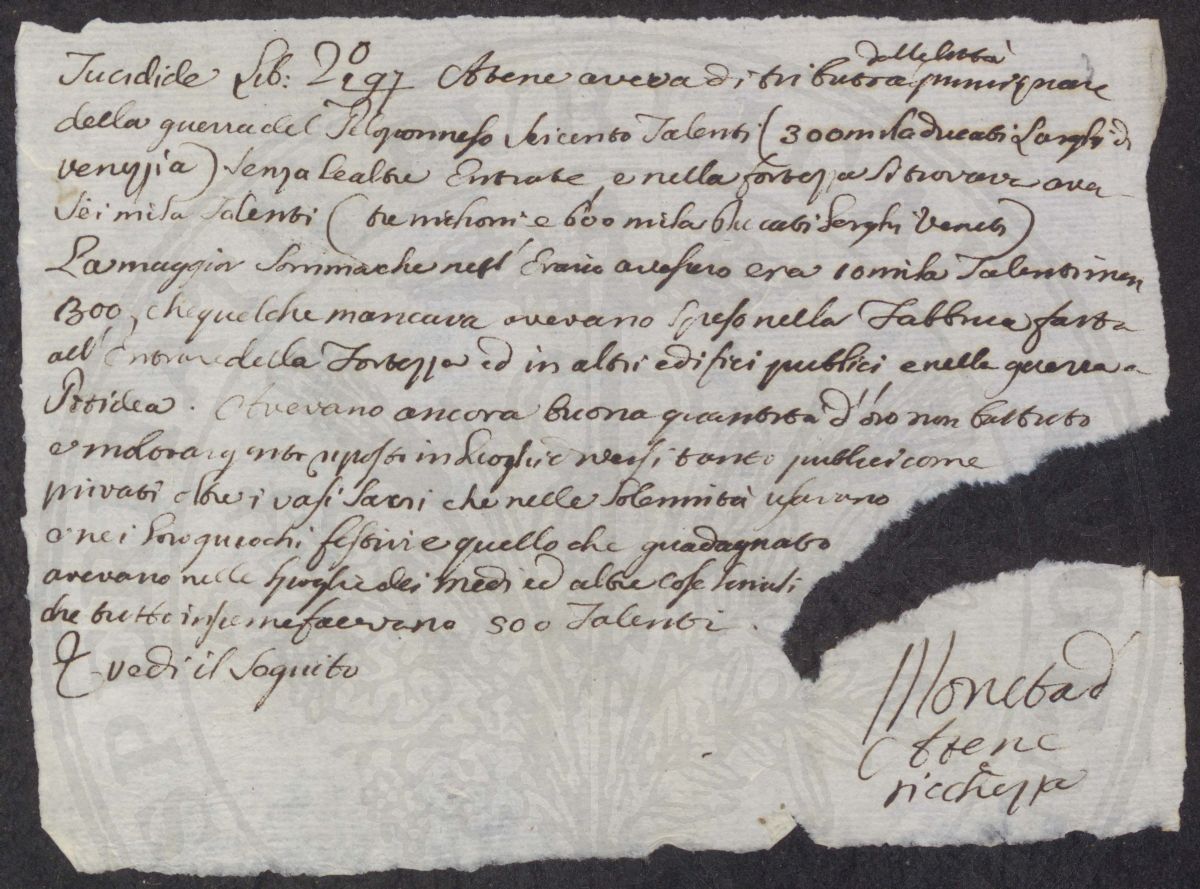 delle Città
Tucidide Lib: 2º 197 Atene aveva di tributi a principiare
della guerra del Peloponneso Seicento Talenti ( 300 mila ducati Larghi di
venezzia ) senza le altre Entrate, e nella fortezza si trovava ava
Sei mila Talenti ( tre milioni e 600 mila Duccati Larghi Veneti )
La maggior Somma che nell' Erario avessero era 10 mila Talenti men
300, che quel che mancava avevano Speso nella Fabbrica fatta
all' Entrare della Fortezza ed in altri edifici publici e nella guerra a
Potidea. Avevano ancora buona quantità d'oro non battuto
e molto argento riposto in luoghi diversi tanto publici come
privati oltre i vasi Sacri che nelle Solennità usavano
e nei loro giuochi festivi e quello che guadagnato
avevano nelle Spoglie dei Medi ed altre cose simili
che tutto insieme facevano 500 Talenti.
vedi il Seguito
Moneta d'
Atene
e
ricchezza